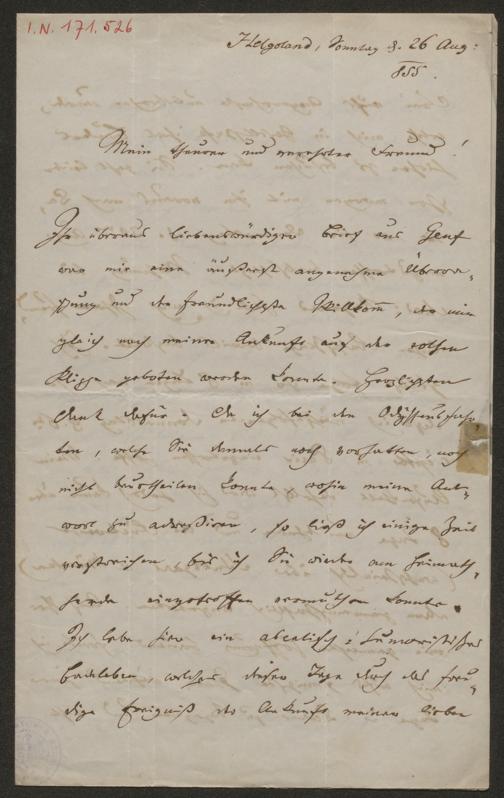 I.N. 171.526
Helgoland, Sonntag d. 26 Aug:
855.
Mein theurer und verehrter Freund!
Ihr überaus liebenswürdiger Brief aus Genf
war mir eine äußerst angenehme Überra-
schung und der freundlichste Willkomm, der mir
gleich nach meiner Ankunft auf der rothen
Klippe geboten werden konnte. Herzlichsten
Dank dafür. Da ich bei den Odysseusfahr-
ten, welche Sie damals noch vorhatten, noch
nicht beurtheilen konnte, wohin meine Ant-
wort zu adressiren, so ließ ich einige Zeit
verstreichen bis ich Sie wieder am heimath-
herde eingetroffen vermuthen konnte.
Ich lebe hier ein humoristisches
Badeleben, welches dieser Tage durch das freu-
dige Ereigniß der Ankunft meiner lieben